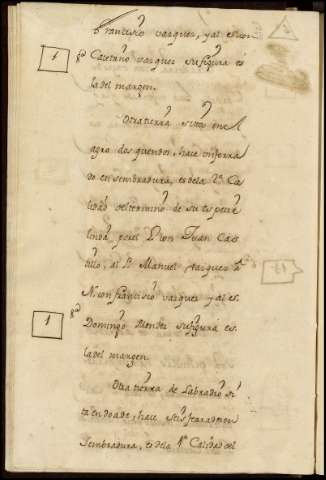 Francisco vazquez, y al est con
1 Caietano vazquez su figura es
la del margen.
Otra tierra sita en el
agro dos quendos, hace un ferra
do en sembradura, es de la 2ª Ca
lidad del termino de su especie
linda por el Dion Juan Cas
tillo, al Pte Manuel vazquez
N. con francisco vazquez y al es
1 Domingo Mendez su figura es
la del margen
Otra tierra de Labradio si
ta en doade, hace seis ferrados en
Sembradura, es de la 1ª Calidad del